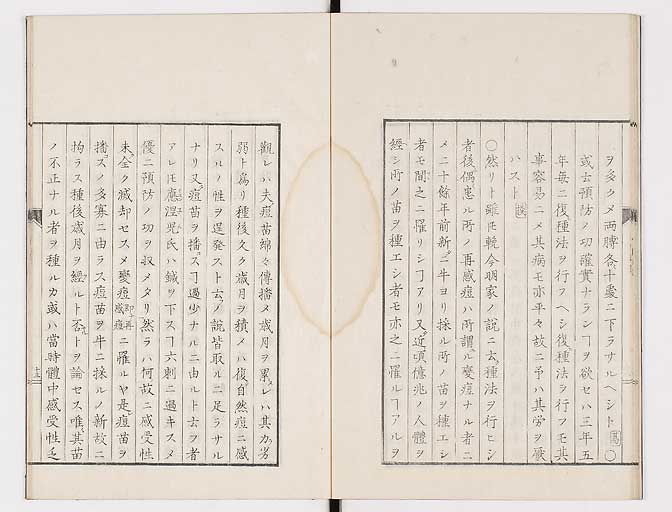 ヲ多クメ両膊各十処ニ下ラサルヘシト
或云預防ノ功確實ナランヿヲ欲セハ三年五
年毎ニ復種法ヲ行フヘシ復種法ヲ行フモ其
事容易ニメ其病モ亦平々故ニ予ハ其労ヲ厭
ハスト
〇然リト雖モ輓今明家ノ説ニ云種法ヲ行ヒシ
者後偶患ル所ノ再感痘ハ所謂ル変痘ナル者ニ
メ二十餘年前新ニ牛ヨリ採ル所ノ苗ヲ種エシ
者モ間之ニ罹リシヿアリ又近頃億兆ノ人體ヲ
經シ所ノ苗ヲ種エシ者モ亦之ニ罹ルヿアルヲ
觀レハ夫痘苗綿々傳播メ歳月ヲ累レハ其力劣
弱ト為リ種後久ク歳月ヲ積メハ復自然痘ニ感
スルノ性ヲ逞発スト云ノ説皆取ルニ足ラサル
ナリ又痘苗ヲ播スヿ過少ナルニ由ルト云フ者
アレモ應涅児氏ハ鍼ヲ下スヿ六刺ニ過キスメ
優ニ預防ノ功ヲ収メタリ然ラハ何故ニ感受性
未全ク滅却セスメ變痘即再感痘ニ罹ルヤ是痘苗ヲ
播スノ多寡ニ由ラス痘苗ヲ牛ニ採ルノ新故ニ
拘ラス種後歳月ヲ經ルト否トヲ論セス唯其苗
ノ不正ナル者ヲ種ルカ或ハ當時體中感受性乏
十三